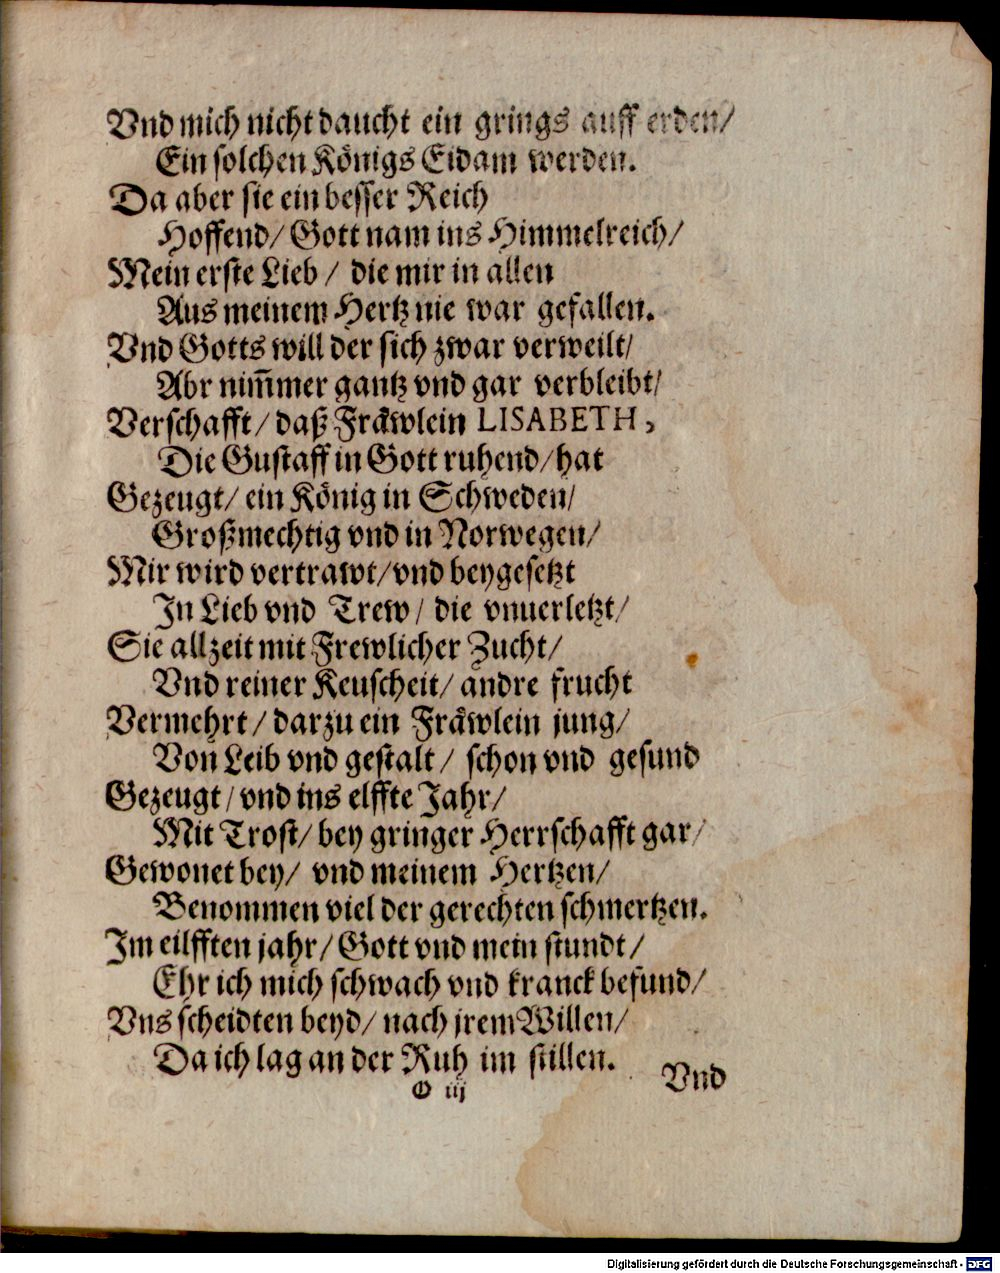 Vnd mich nicht daucht ein grings auff erden/
Ein solchen Königs Eidam werden.
Da aber sie ein besser Reich
Hoffend/ Gott nam ins Himmelreich/
Mein erste Lieb / die mir in allen
Aus meinem Hertz nie war gefallen.
Vnd Gotts will der sich zwar verweilt/
Abr nim̄mer gantz vnd gar verbleibt/
Verschafft/ daß Fraͤwlein LISABETH,
Die Gustaff in Gott ruhend/ hat
Gezeugt/ ein König in Schweden/
Großmechtig vnd in Norwegen/
Mir wird vertrawt/ vnd beygesetzt
In Lieb vnd Trew/ die vnuerletzt/
Sie allzeit mit Frewlicher Zucht/
Vnd reiner Keuscheit/ andre frucht
Vermehrt/ darzu ein Fraͤwlein jung/
Von Leib vnd gestalt/ schon vnd gesund
Gezeugt/ vnd ins elffte Jahr/
Mit Trost/ bey gringer Herrschafft gar/
Gewonet bey/ vnd meinem Hertzen/
Benommen viel der gerechten schmertzen.
Im eilfften jahr/ Gott vnd mein stundt/
Ehr ich mich schwach vnd kranck befund/
Vns scheidten beyd/ nach jrem Willen/
Da ich lag an der Ruh im stillen.
iij
Vnd
Digitalisierung gefördert durch die Deutsche Forschungsgemeinschaft - DFG